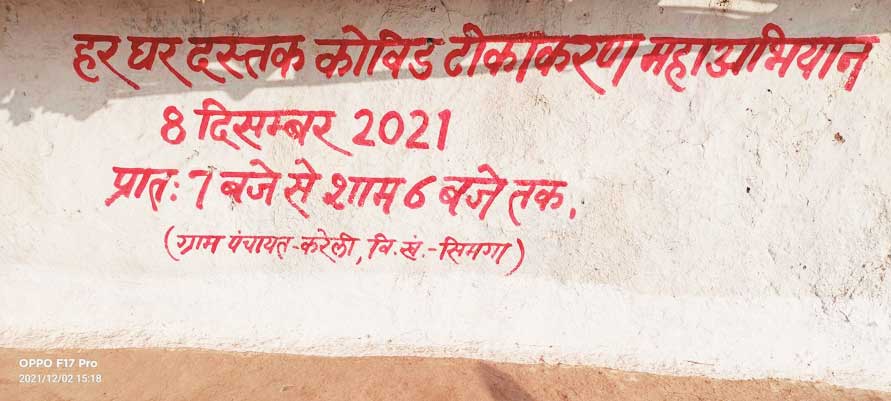 हर घर दस्तक कोविड टीकाकरण महाअभियान
8 दिसम्बर 2021
प्रातः 7 बजे से शाम 6 बजे तक.
(ग्राम पंचायत-करेली, वि.खं.-सिमगा)
OPPO F17 Pro
2021/12/02 15:18